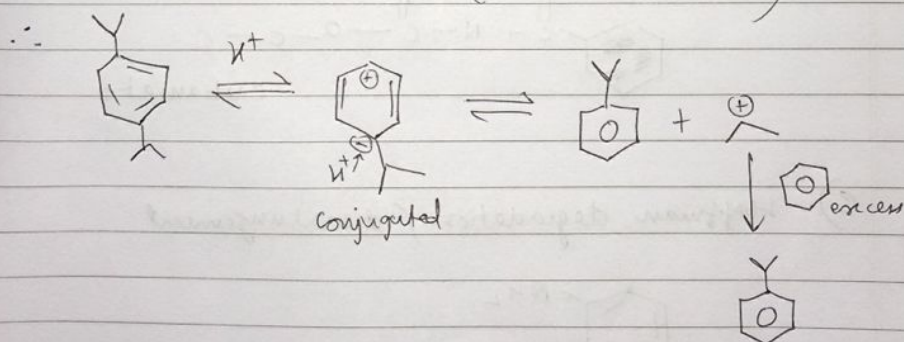 ∴
H⁺
⊕
⊖
H⁺
+
⊕
conjugated
excess